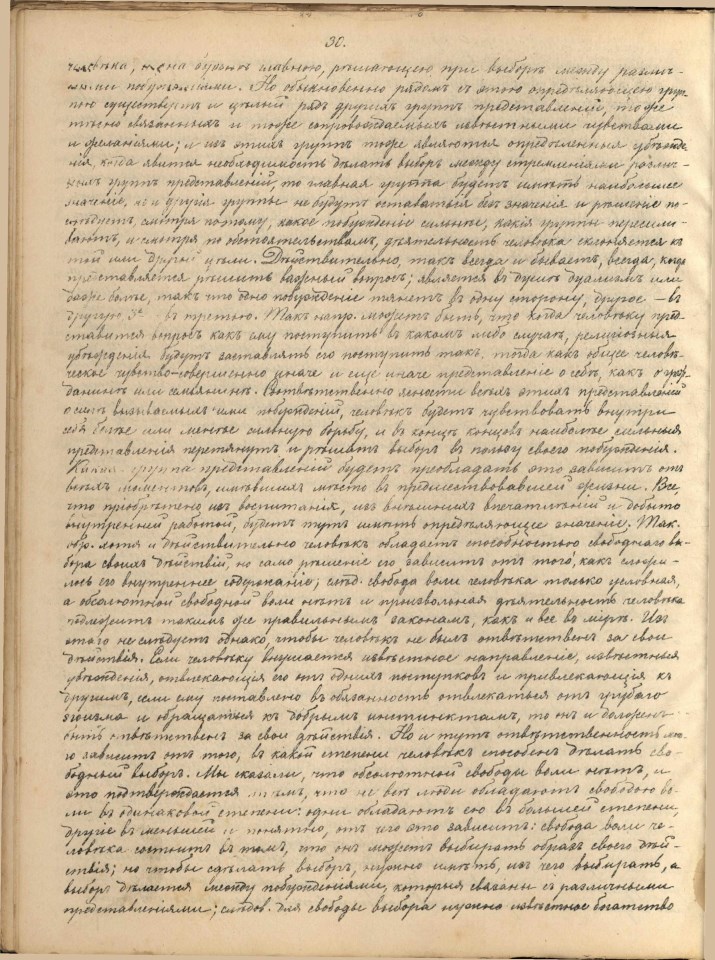 30.
человѣка, и она будетъ главною, рѣшающею при выборѣ между различ-
ными побужденіями. Но обыкновенно рядомъ съ этою опредѣляющею груп-
пою существуетъ и цѣлый рядъ другихъ группъ представленій, тоже
тѣсно связанныхъ и тоже сопровождаемыхъ извѣстными чувствами
и желаніями; и изъ этихъ группъ тоже являются опредѣленныя убѣжде-
нія, когда явится необходимость дѣлать выборъ между стремленіями различ-
ныхъ группъ представленій, то главная группа будетъ имѣть наибольшее
значеніе, но и другія группы не будутъ оставаться безъ значенія и рѣшеніе по-
слѣдуетъ, смотря потому, какое побужденіе сильнѣе, какія группы пересили-
ваютъ, и смотря по обстоятельствамъ, дѣятельность человѣка склоняется къ
той или другой цѣли. Дѣйствительно, такъ всегда и бываетъ, всегда, когда
представляется рѣшить важный вопросъ; является въ душѣ дуализмъ или
даже болѣе, такъ что одно побужденіе тянетъ въ одну сторону, другое – въ
другую, 3е – въ третью. Такъ напр. можетъ быть, что когда человѣку пред-
ставится вопросъ какъ ему поступить въ какомъ либо случаѣ, религіозныя
убѣжденія будутъ заставлять его поступить такъ, тогда какъ общее человѣ-
ческое чувство – совершенно иначе и еще иначе представленіе о себѣ, какъ о граж-
данинѣ или семьянинѣ. Соотвѣтственно ясности всѣхъ этихъ представленій
о силѣ вызываемыхъ ими побужденій, человѣкъ будетъ чувствовать внутри
себя болѣе или менѣе сильную борьбу, и въ концѣ концовъ наиболѣе сильныя
представленія перетянутъ и рѣшатъ выборъ въ пользу своего побужденія.
Какая группа представленій будетъ преобладать это зависитъ отъ
всѣхъ моментовъ, имѣвшихъ мѣсто въ предшествовавшей жизни. Все,
что пріобрѣтено изъ воспитанія, изъ внѣшнихъ впечатлѣній и добыто
внутренней работой, будетъ тутъ имѣть опредѣляющее значеніе. Так.
обр. хотя и дѣйствительно человѣкъ обладаетъ способностью свободнаго вы-
бора своихъ дѣйствій, но само рѣшеніе его зависитъ отъ того, какъ сложи-
лось его внутреннее содержаніе; слѣд. свобода воли человѣка только условная,
а абсолютной свободной воли нѣтъ и произвольная дѣятельность человѣка
подлежитъ такимъ же правильнымъ законамъ, какъ и все въ мірѣ. Изъ
этого не слѣдуетъ однако, чтобы человѣкъ не былъ отвѣтственъ за свои
дѣйствія. Если человѣку внушается извѣстное направленіе, извѣстныя
убѣжденія, отвлекающія его отъ однихъ поступковъ и привлекающія къ
другимъ, если ему поставлено въ обязанность отвлекаться отъ грубаго
эгоизма и обращаться къ добрымъ инстинктамъ, то онъ и долженъ
быть отвѣтственъ за свои дѣйствія. Но и тутъ отвѣтственность
зависитъ отъ того, въ какой степени человѣкъ способенъ дѣлать сво-
бодный выборъ. Мы сказали, что абсолютной свободы воли нѣтъ, и
это подтверждается тѣмъ, что не всѣ люди обладаютъ свободою во-
ли въ одинаковой степени: одни обладаютъ ею въ большей степени,
другіе въ меньшей и понятно, отъ чего это зависитъ: свобода воли че-
ловѣка состоитъ въ томъ, что онъ можетъ выбирать образъ своего дѣй-
ствія; но чтобы сдѣлать выборъ, нужно имѣть, изъ чего выбирать, а
выборъ дѣлается между побужденіями, которыя связаны съ различными
представленіями; слѣдов. для свободы выбора нужно извѣстное богатство